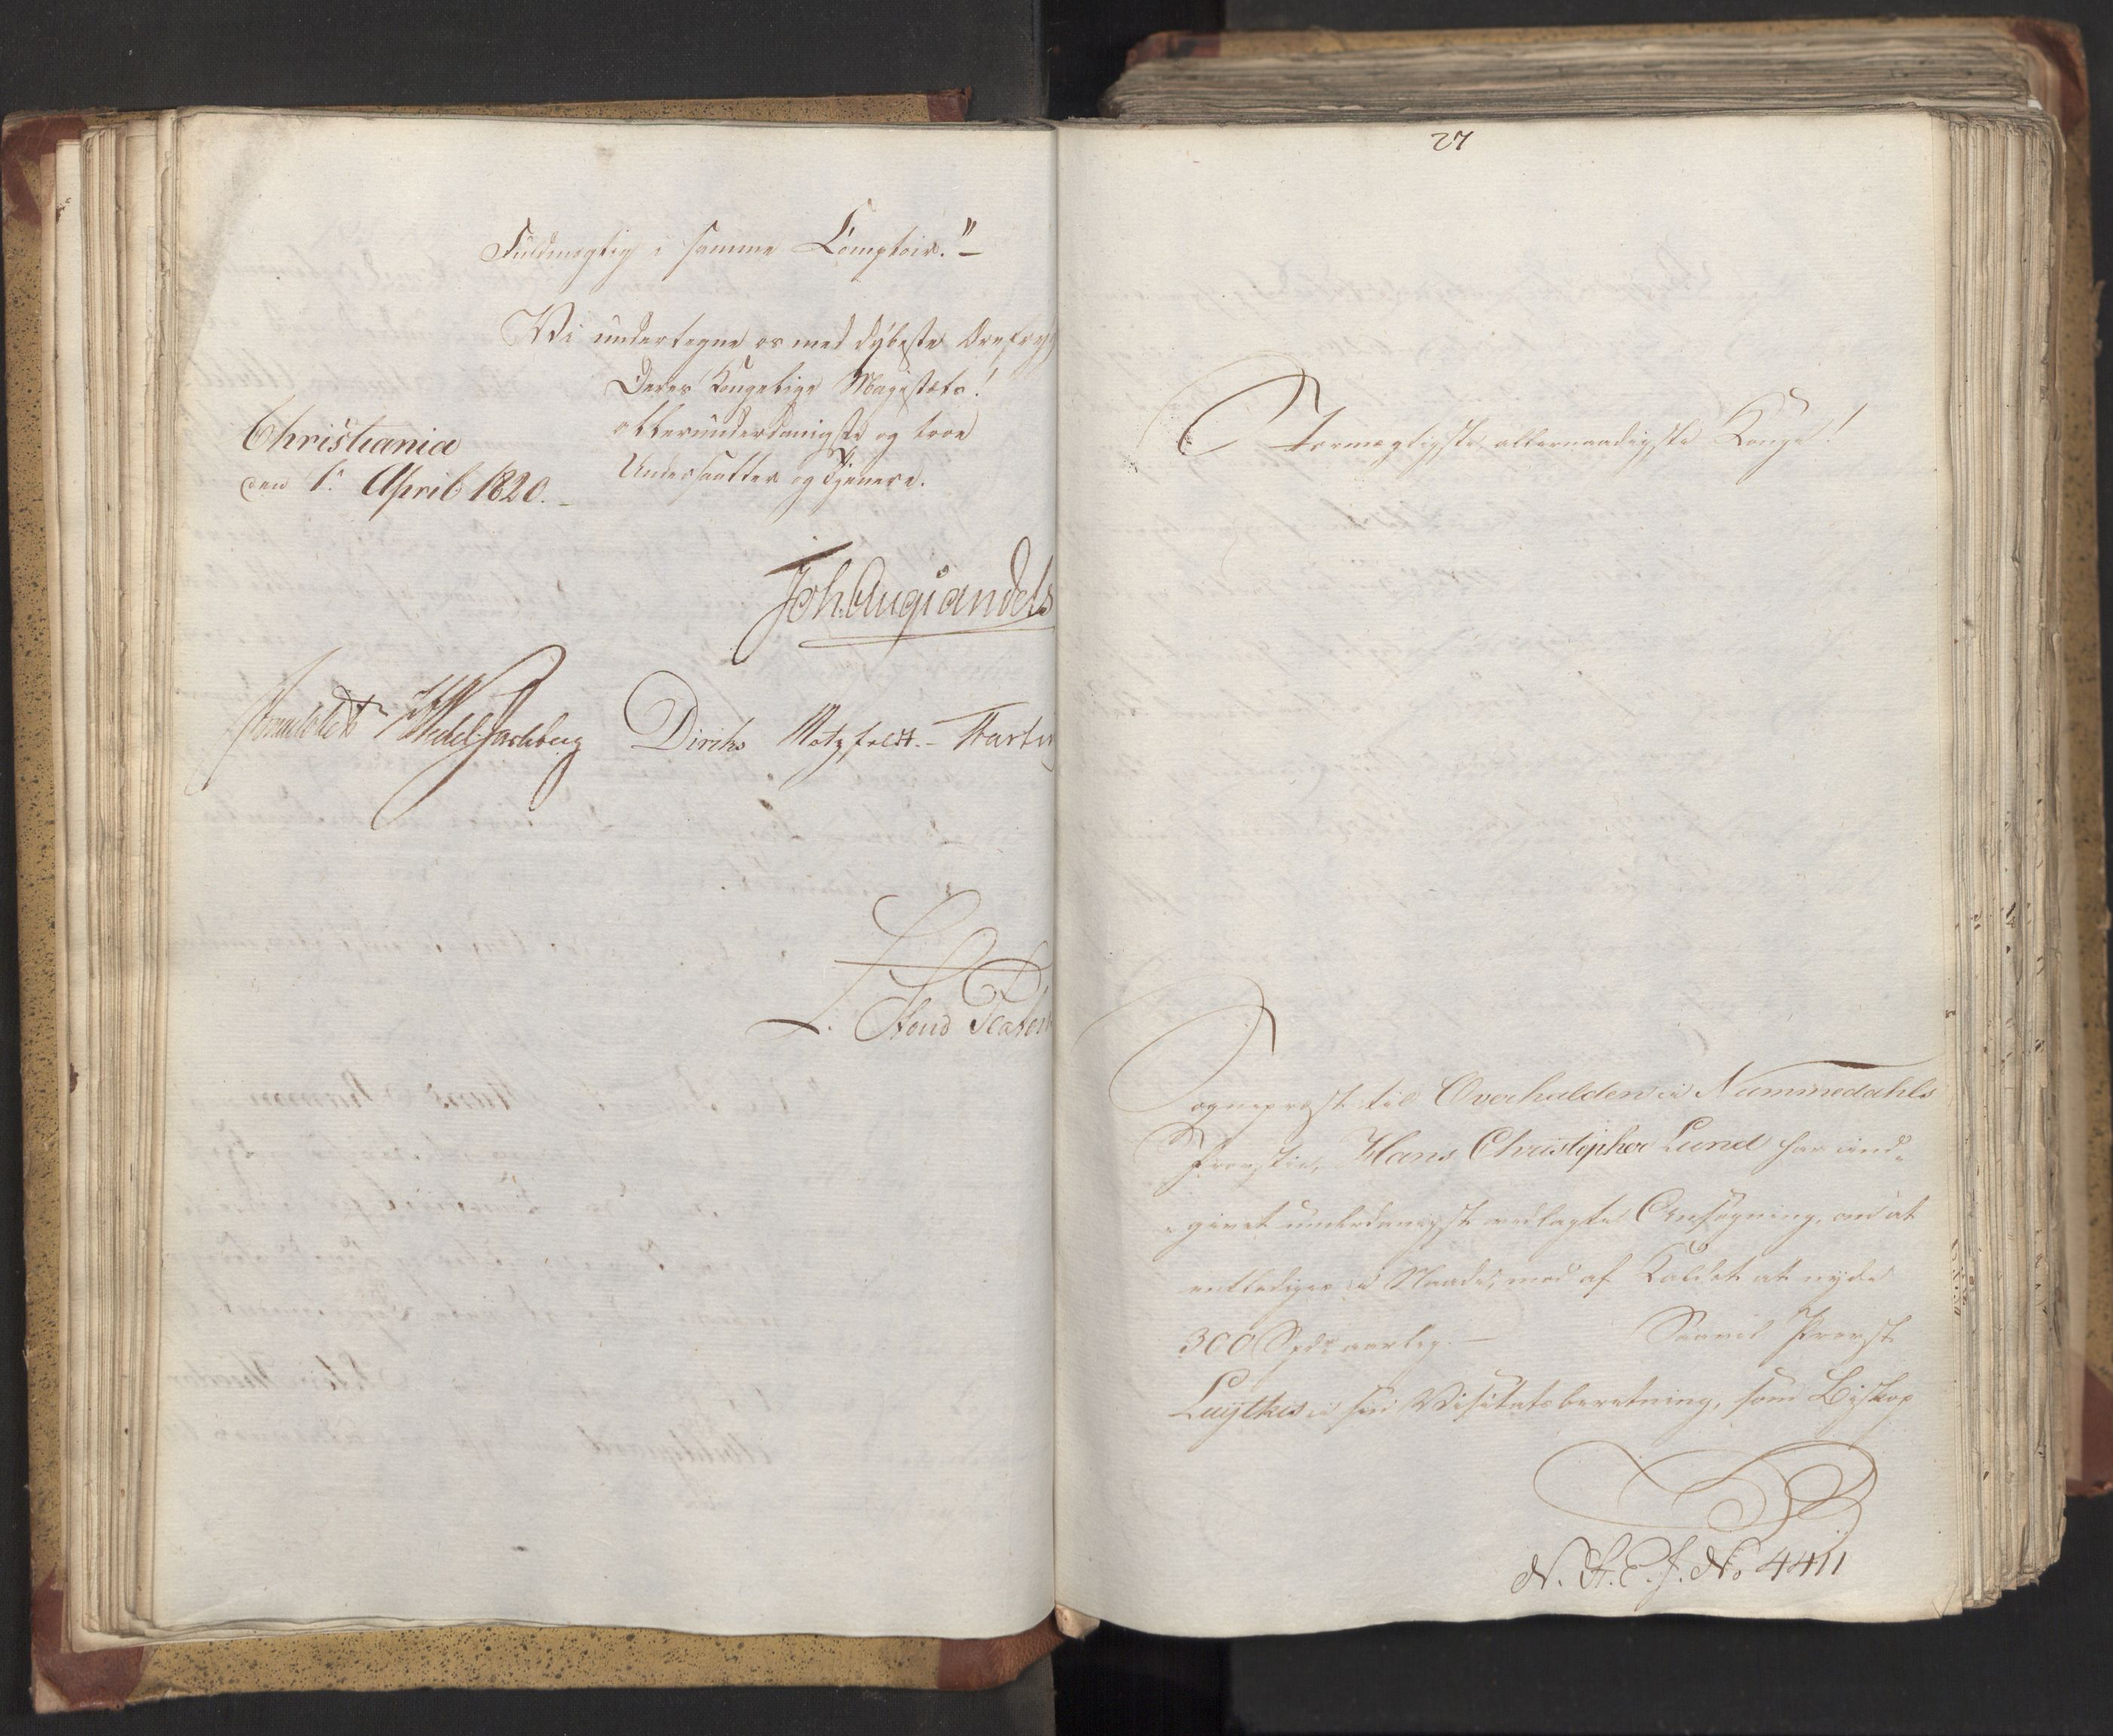 Fuldmægtig i samme Comptoir."—
Vi undertegne os med dybeste Ærefrygt
Deres Kongelige Majestæts!
allerunderdanigste og troe
Undersaatter og Tjenere.
Christiania
den 1: April 1820.
Joh. Aug. Sandels
Sommelholdt HWedel Jarlsberg Diriks Motzfeldt.- Fasting
L. Stoud Platou
27
Stormægtigste, allernaadigste Konge!
Sognepræst til Overhalden i Nummedahls
Provstie, Hans Christopher Lund har ind-
givet underdanigst vedlagte Ansøgning, om at
entlediges i Naade, med af Kaldet at nyde
300 Spd: aarlig.— Saavel Provst
Luytkes i sin Visitatsberetning, som Biskop
N. St. E. J. No 4411